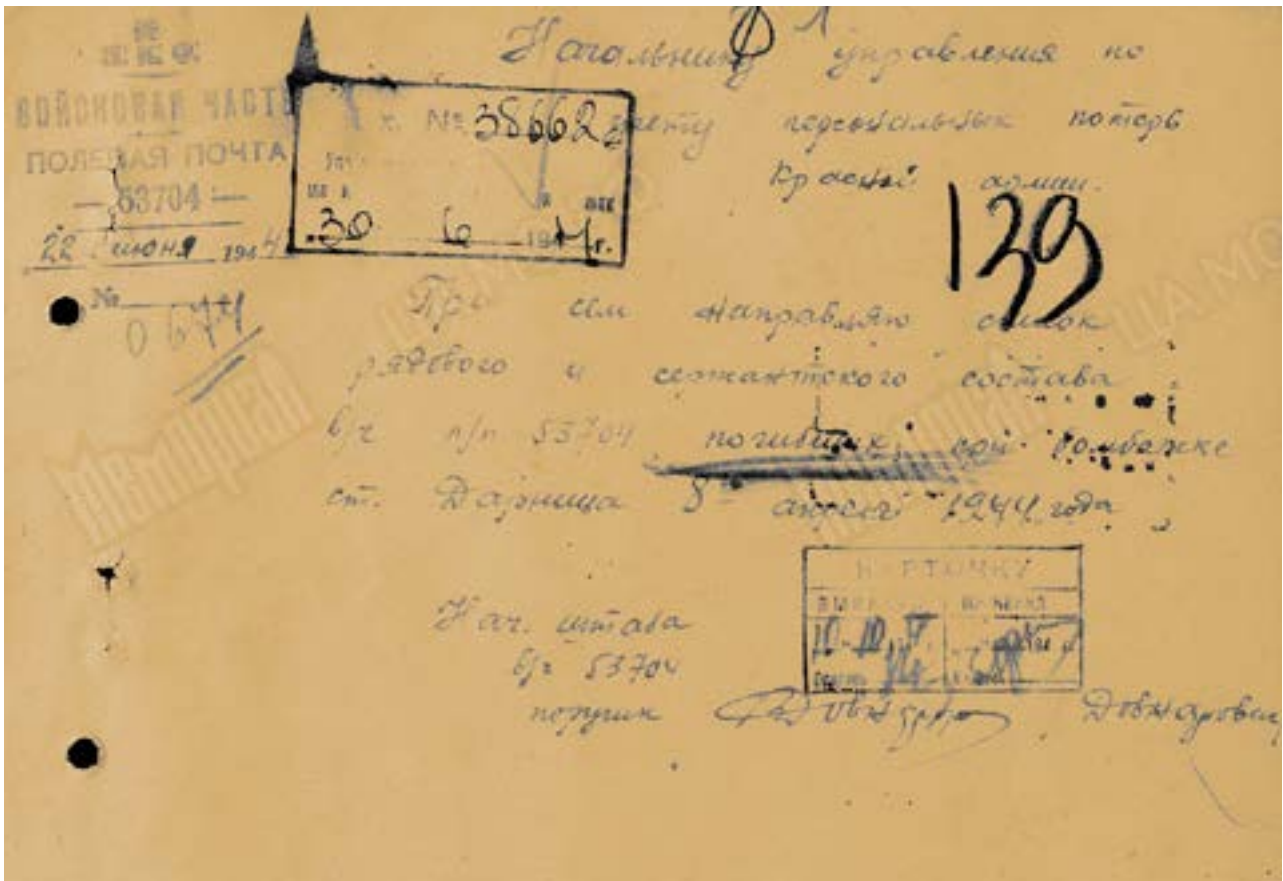 НКО
ВОЙСКОВАЯ ЧАСТЬ
ПОЛЕВАЯ ПОЧТА
— 53704 —
22 июня 1944
№ 0674
№ 38662
30 6 1944г.
Начальнику управления по
учету персональных потерь
Красной армии.
139
При сем направляю список
рядового и сержантского состава
в/ч п/п 53704 погибших при бомбежке
ст. Дарница 8 апреля 1944 года
КАРТОЧКУ
Нач. штаба
в/ч 53704
поручик Довнарович
Мемориал
ЦАМО